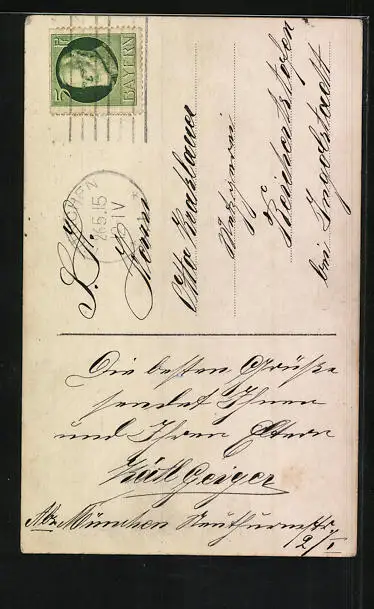 5 Pf
BAYERN
26.5.15
IV
S. H.
Herrn
Otto
Metzgerei
Reichertshofen
bei Ingolstadt
Die besten Grüße
sendet Ihnen
und Ihren Eltern
Geiger
Abs. München
2/I